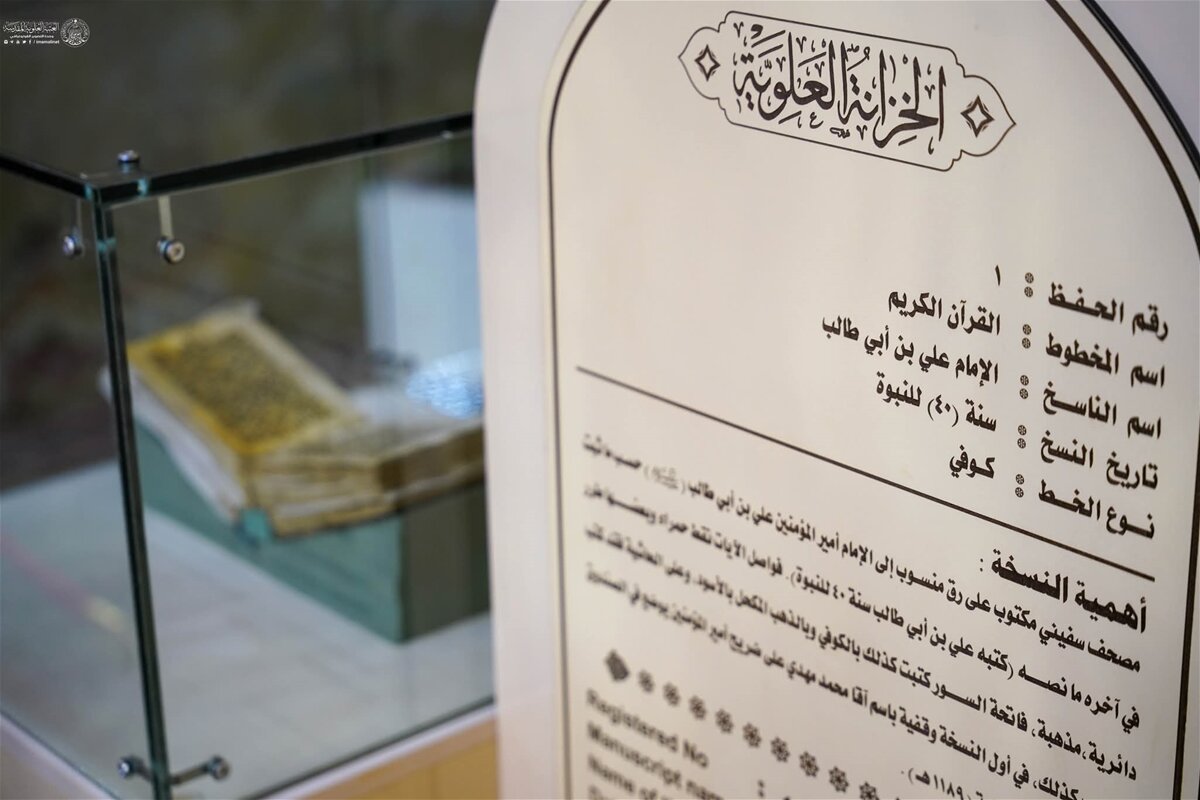 العتبة العلوية المقدسة
/ imamalinet
الخِزانَةُ العَلَوِيَّة
رقم الحـفـظ : ١
اسم المخطوط : القرآن الكريم
اسم الناسـخ : الإمام علي بن أبي طالب
تاريخ النسخ : سنة (٤٠) للنبوة
نـوع الخـط : كـوفي
أهمية النسخة :
مصحف سفيني مكتوب على رق منسوب إلى الإمام أمير المؤمنين علي بن أبي طالب ( ) حسب ما ثبت
في آخره ما نصـه (كتبه علي بن أبي طالب سنة ٤٠ للنبوة). فواصل الآيات نقط حمراء وبعضـها
دائرية ، مذهبة ، فاتحة السـور كتبت كذلك بالكوفي وبالذهب المكحل بالأسود، وعلى الحاشية فقد كتب
كذلك، في أول النسخة وقفية باسم آقا محمد مهدي على ضريح أمير المؤمنين يوضع في
(١١٨٩هـ).
Registered No
Manuscript name
Name of